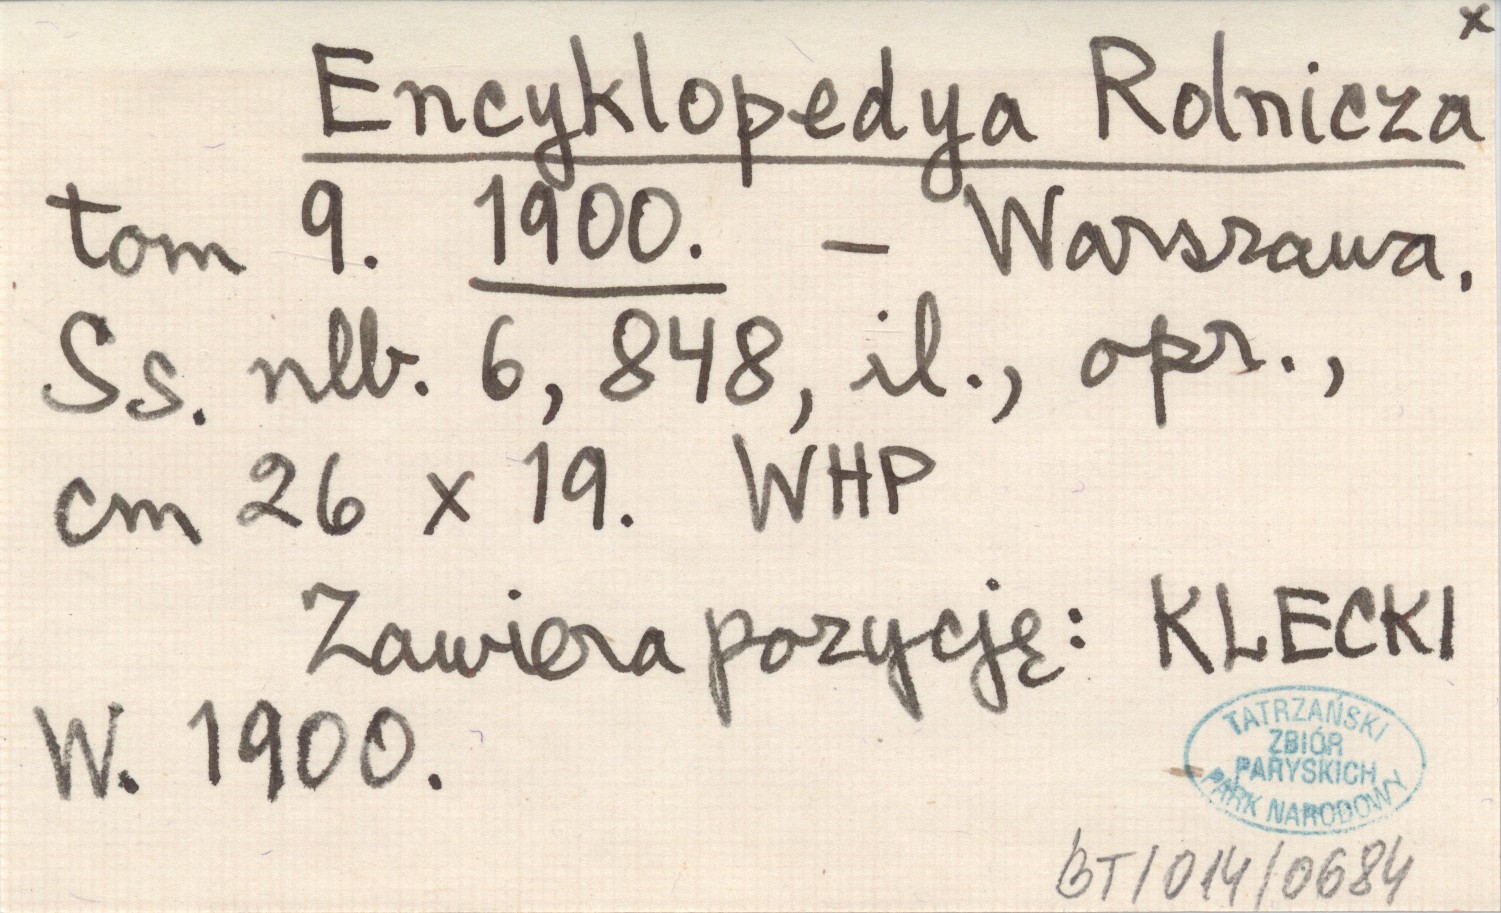 x
Encyklopedya Rolnicza
tom 9. 1900. – Warszawa,
Ss. nlb. 6, 848, il., opr.,
cm 26 x 19. WHP
Zawiera pozycję: KLECKI
W. 1900.
TATRZAŃSKI
ZBIÓR
PARYSKICH
PARK NARODOWY
BT/014/0684